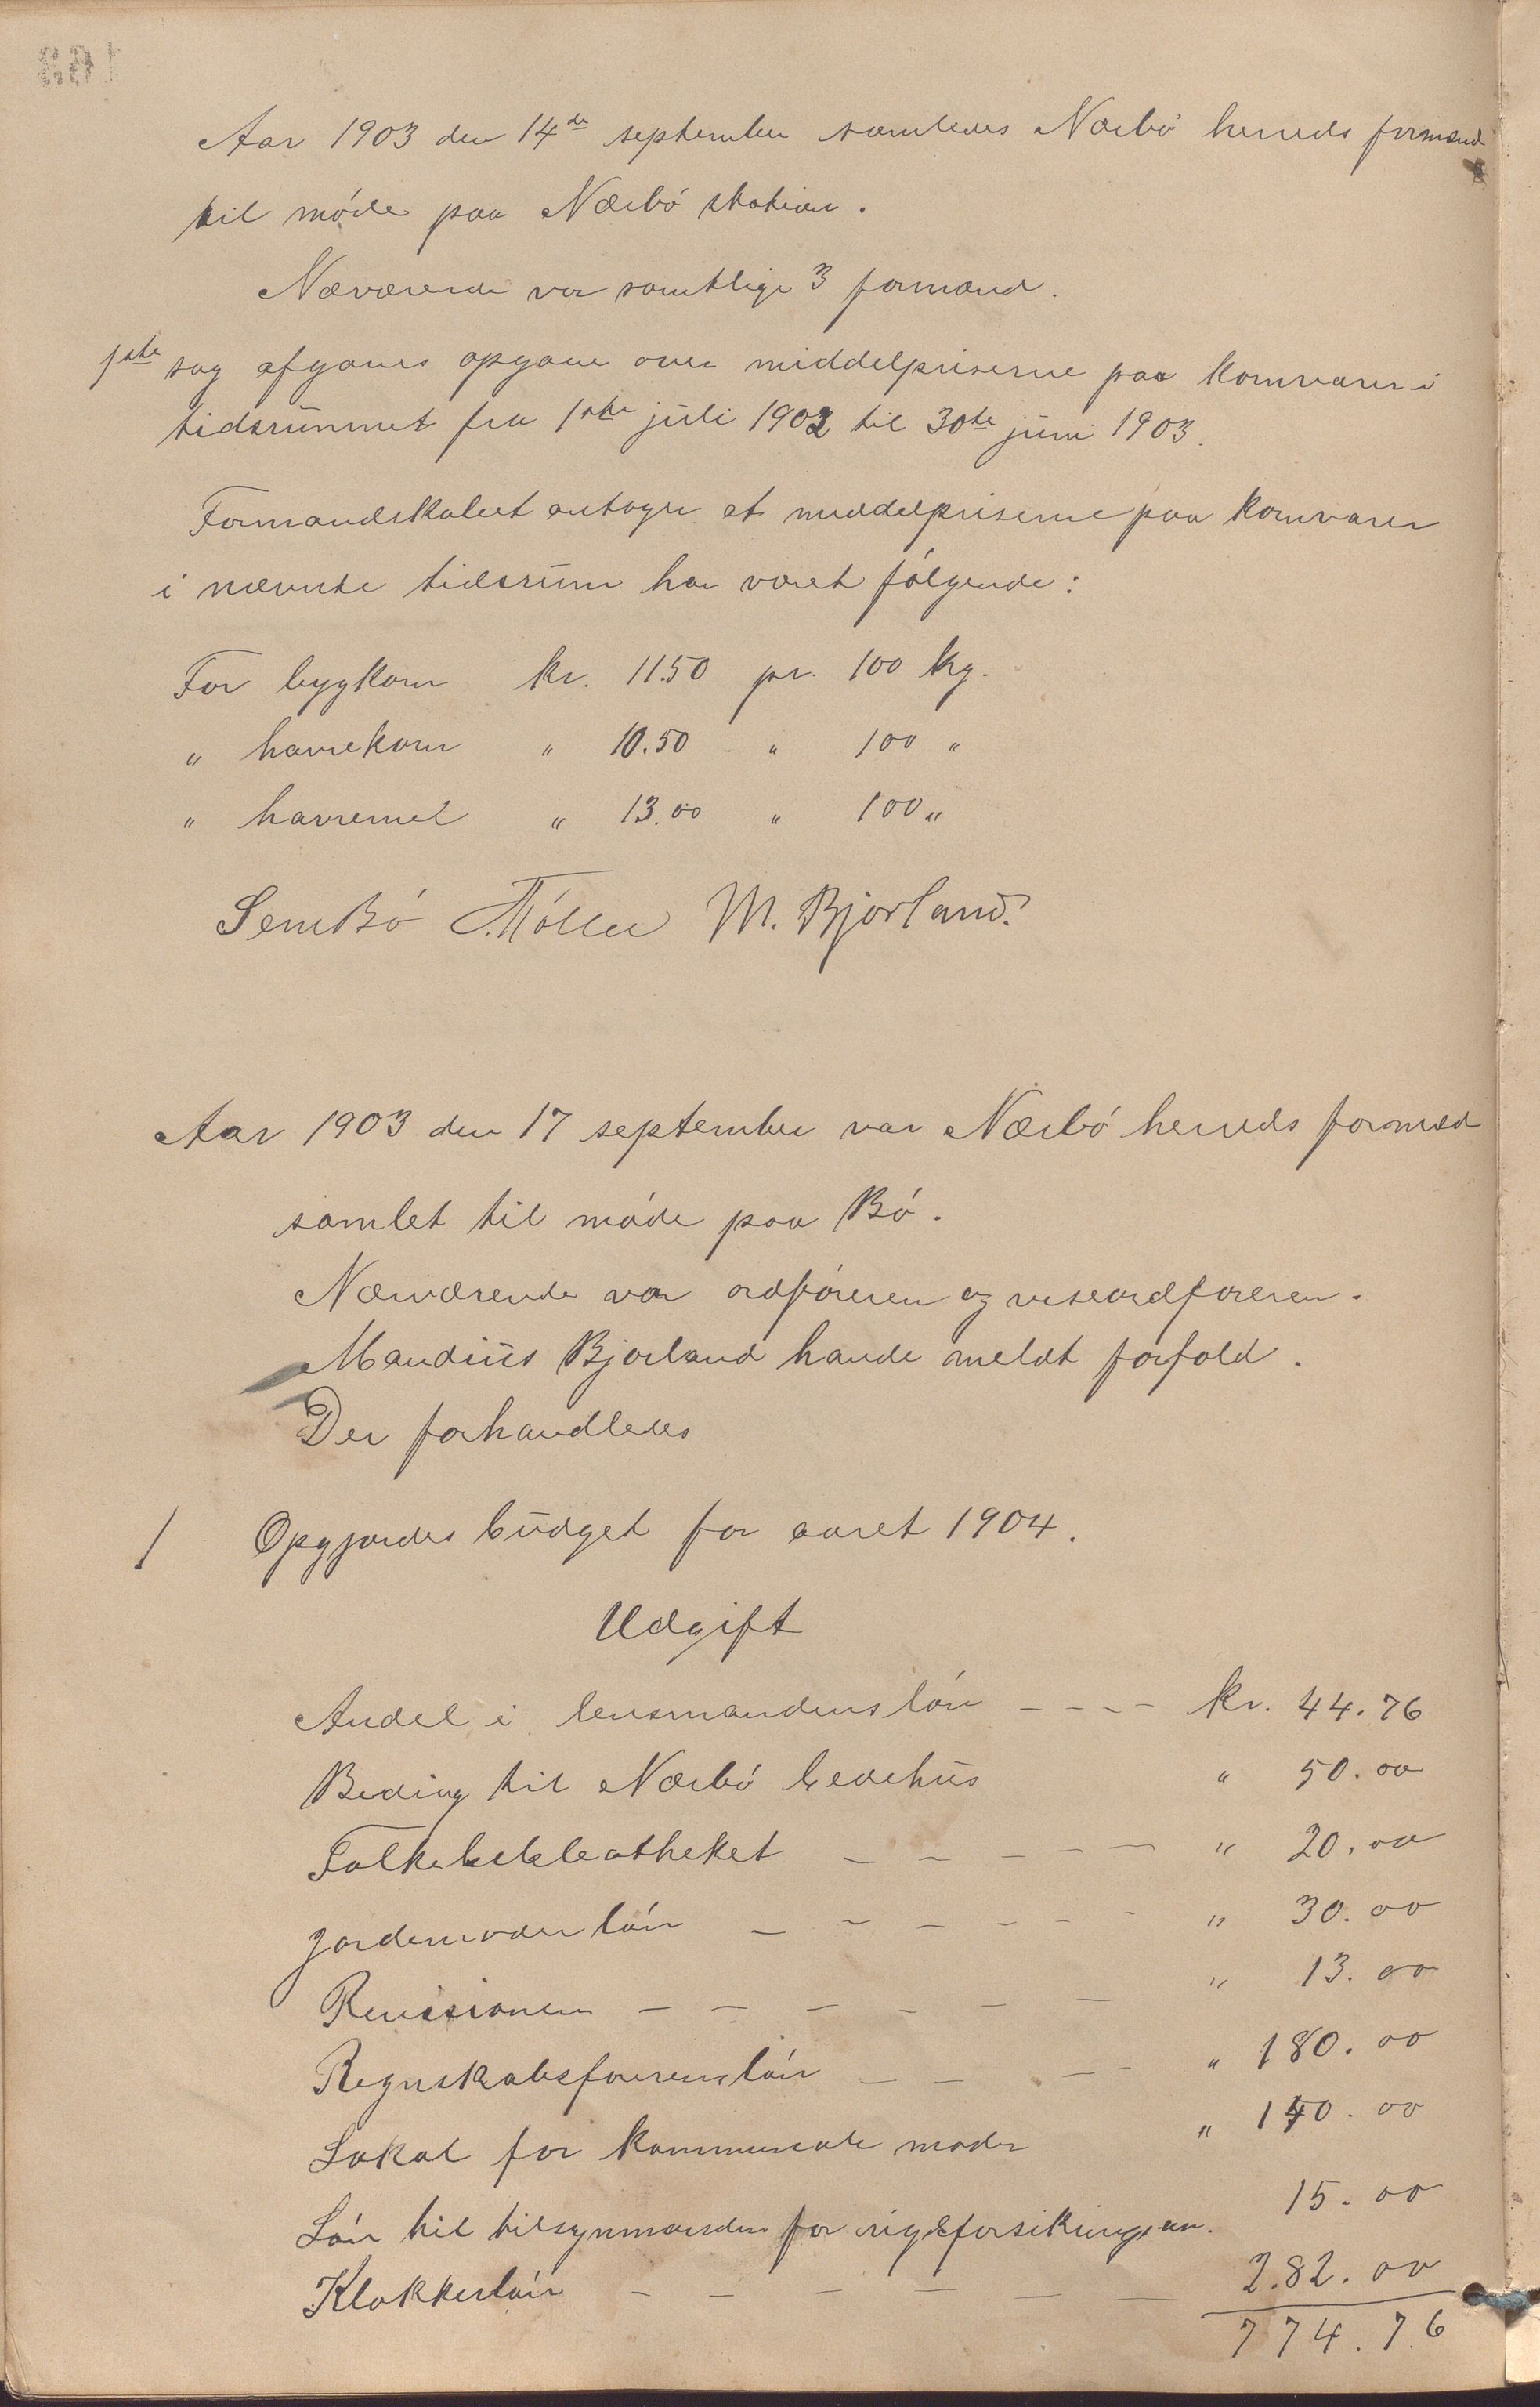 Aar 1903 den 14de september samledes Nærbø herreds formænd
til møde paa Nærbø station.
Næværende var samtlige 3 formænd.
1ste sag afgaves opgave over middelpriserne paa kornvarer i
tidsrummet fra 1ste juli 1902 til 30te juni 1903.
Formandskabet antager at middelpriserne paa kornvarer
i nævnte tidsrum har været følgende:
For bygkorn kr. 11.50 pr. 100 kg.
" havrekorn " 10.50 " 100 "
" havremel " 13.00 " 100 "
Sem Bø Møller M. Bjorland.
Aar 1903 den 17 september var Nærbø herreds formæd
samlet til møde paa Bø.
Nærværende var ordføreren og viseordføreren.
Maudius Bjorland havde meldt forfald.
Der forhandledes
1 Opgjordes budget for aaret 1904.
Udgift
Andel i lensmandensløn - - - kr. 44.76
til Nærbø bedehus " 50.00
Folkebibleotheket - - - - - " 20.00
jordemoderløn - - - - - - " 30.00
Revisionen - - - - - - " 13.00
Regnskabsførerensløn - - - " 180.00
Lokal for kommunale møder " 140.00
Løn til tilsynmanden for 15.00
Klokkerløn - - - - - - 282.00
774.76